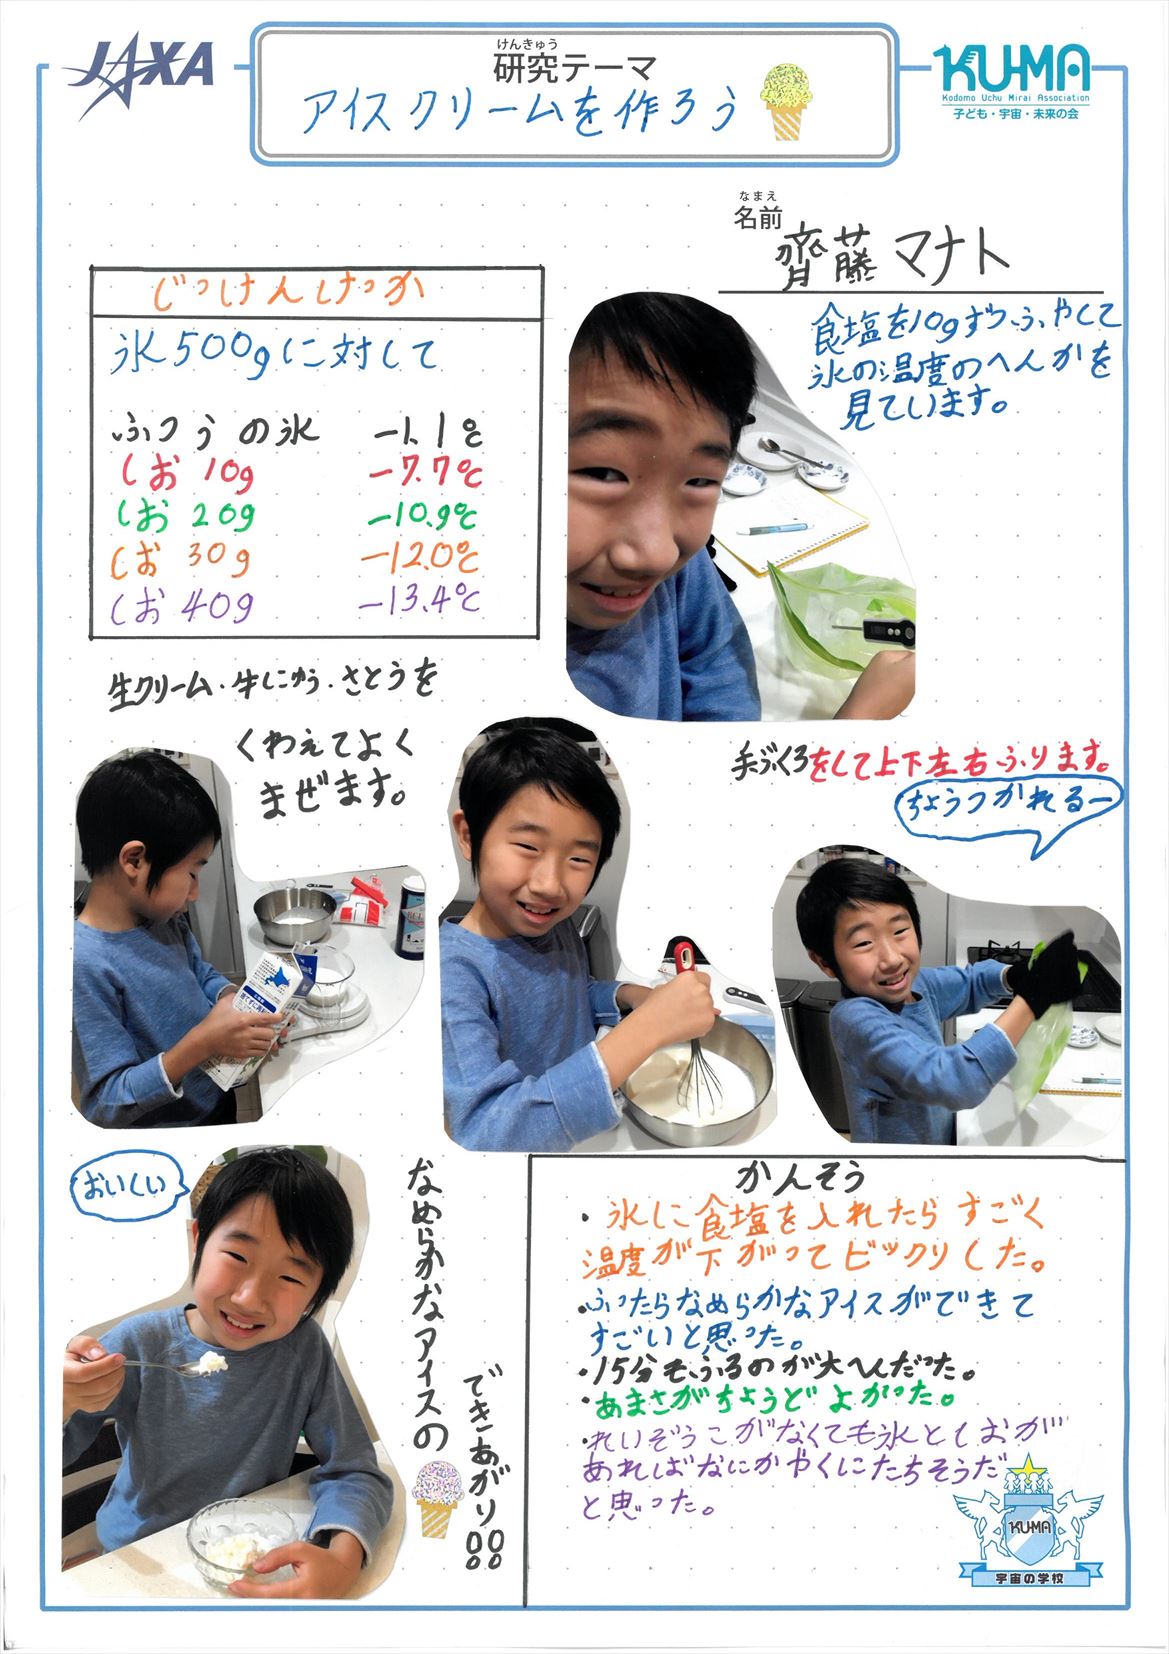 JAXA
けんきゅう
研究テーマ
アイスクリームを作ろう
KU-MA
Kodomo Uchu Mirai Association
子ども・宇宙・未来の会
なまえ
名前
齊藤マナト
じっけんけっか
氷500gに対して
ふつうの氷 -1.1℃
しお 10g -7.7℃
しお 20g -10.9℃
しお 30g -12.0℃
しお 40g -13.4℃
食塩を10gずつふやして
氷の温度のへんかを
見ています。
生クリーム・牛にゅう・さとうを
くわえてよく
まぜます。
手ぶくろをして上下左右ふります。
ちょうつかれるー
おいしい
なめらかなアイスの
できあがり!!
かんそう
・氷に食塩を入れたらすごく
温度が下がってビックリした。
・ふったらなめらかなアイスができて
すごいと思った。
・15分も、ふるのが大へんだった。
・あまさがちょうどよかった。
・れいぞうこがなくても氷としおが
あればなにかやくにたちそうだ
と思った。
KU-MA
宇宙の学校